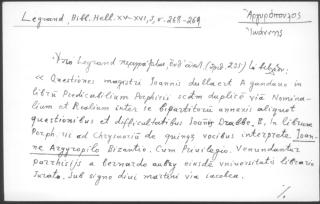 Legrand, Bibl. Hell. XV-XVI, 3, σ. 268-269
Ἀργυρόπουλος
Ἰωάννης
Legrand περιγράφεται,
« Questiones magistri Joannis dullaert A gandavo in
librū Predicabilium Porphirii scdm duplicē viā Nomina-
lium et Realium inter se bipartitorii annexis aliquot
questionibus et difficultatibus Joānis Drabbe. B. In librum
Porph. iii ad Chrysaoriū de quinqz vocibus interprete Joan-
ne Argyropilo Bizantio. Cum Privilegio. Venundantur
parrhisijs a bernardo aubry eiusdē vniversitatis librario
Jurato. Sub signo divi martini via iacobea.
·/.